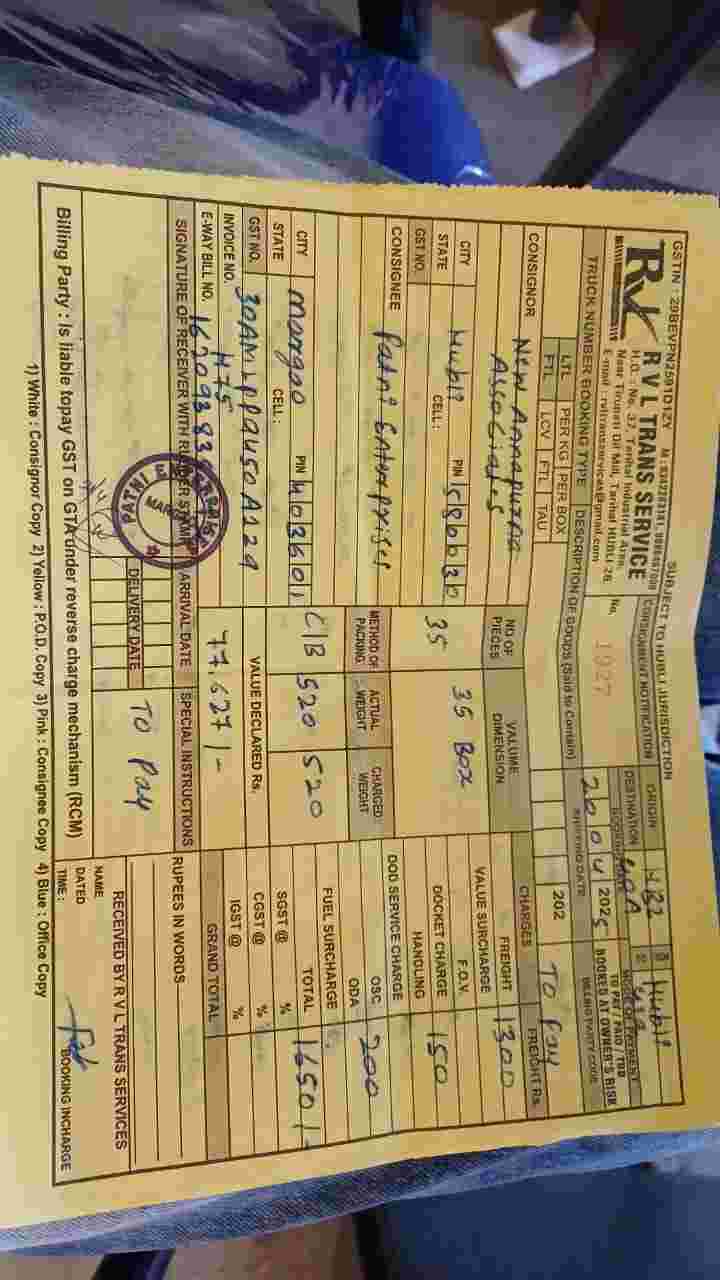 GSTIN : 29BEVPN2591D1ZY
SUBJECT TO HUBLI JURISDICTION
RVL
R V L TRANS SERVICE
H.O. : No. 37, Tarihal Industrial Area,
Near Tirupati Dil Mill, Tarihal HUBLI-26.
E-mail : rvltransservices@gmail.com
CONSIGNMENT NOTIFICATION
No. 1927
ORIGIN HB2 Hubli
DESTINATION
BOOKING DATE
20 04 2025
202
MODE OF PAYMENT
TO PAY / PAID / TBB
BOOKED AT OWNER'S RISK
BILLING PARTY CODE
TRUCK NUMBER BOOKING TYPE
DESCRIPTION OF GOODS (Said to Contain)
LTL PER KG PER BOX
FTL LCV FTL TAU
CONSIGNOR New Annapurna
Associates
CITY Hubli PIN 580030
STATE CELL :
GST NO.
CONSIGNEE Patni Enterprises
CITY Margao PIN 403601
STATE CELL :
GST NO.
INVOICE NO. H75
E-WAY BILL NO.
NO OF PIECES
35
VALUME DIMENSION
35 Box
METHOD OF PACKING
C/B
ACTUAL WEIGHT
520
CHARGED WEIGHT
520
VALUE DECLARED Rs.
77,627/-
CHARGES FREIGHT Rs.
To Pay
FREIGHT 1300
VALUE SURCHARGE
F.O.V.
DOCKET CHARGE 150
HANDLING
DOD SERVICE CHARGE
OSC 200
ODA
FUEL SURCHARGE
TOTAL 1650/-
SGST @ %
CGST @ %
IGST @ %
GRAND TOTAL
SIGNATURE OF RECEIVER WITH RUBBER STAMP
PATNI
ARRIVAL DATE
DELIVERY DATE
SPECIAL INSTRUCTIONS
TO Pay
RUPEES IN WORDS
RECEIVED BY R V L TRANS SERVICES
NAME
DATED
TIME :
BOOKING INCHARGE
Billing Party : Is liable topay GST on GTA under reverse charge mechanism (RCM)
1) White : Consignor Copy 2) Yellow : P.O.D. Copy 3) Pink : Consignee Copy 4) Blue : Office Copy